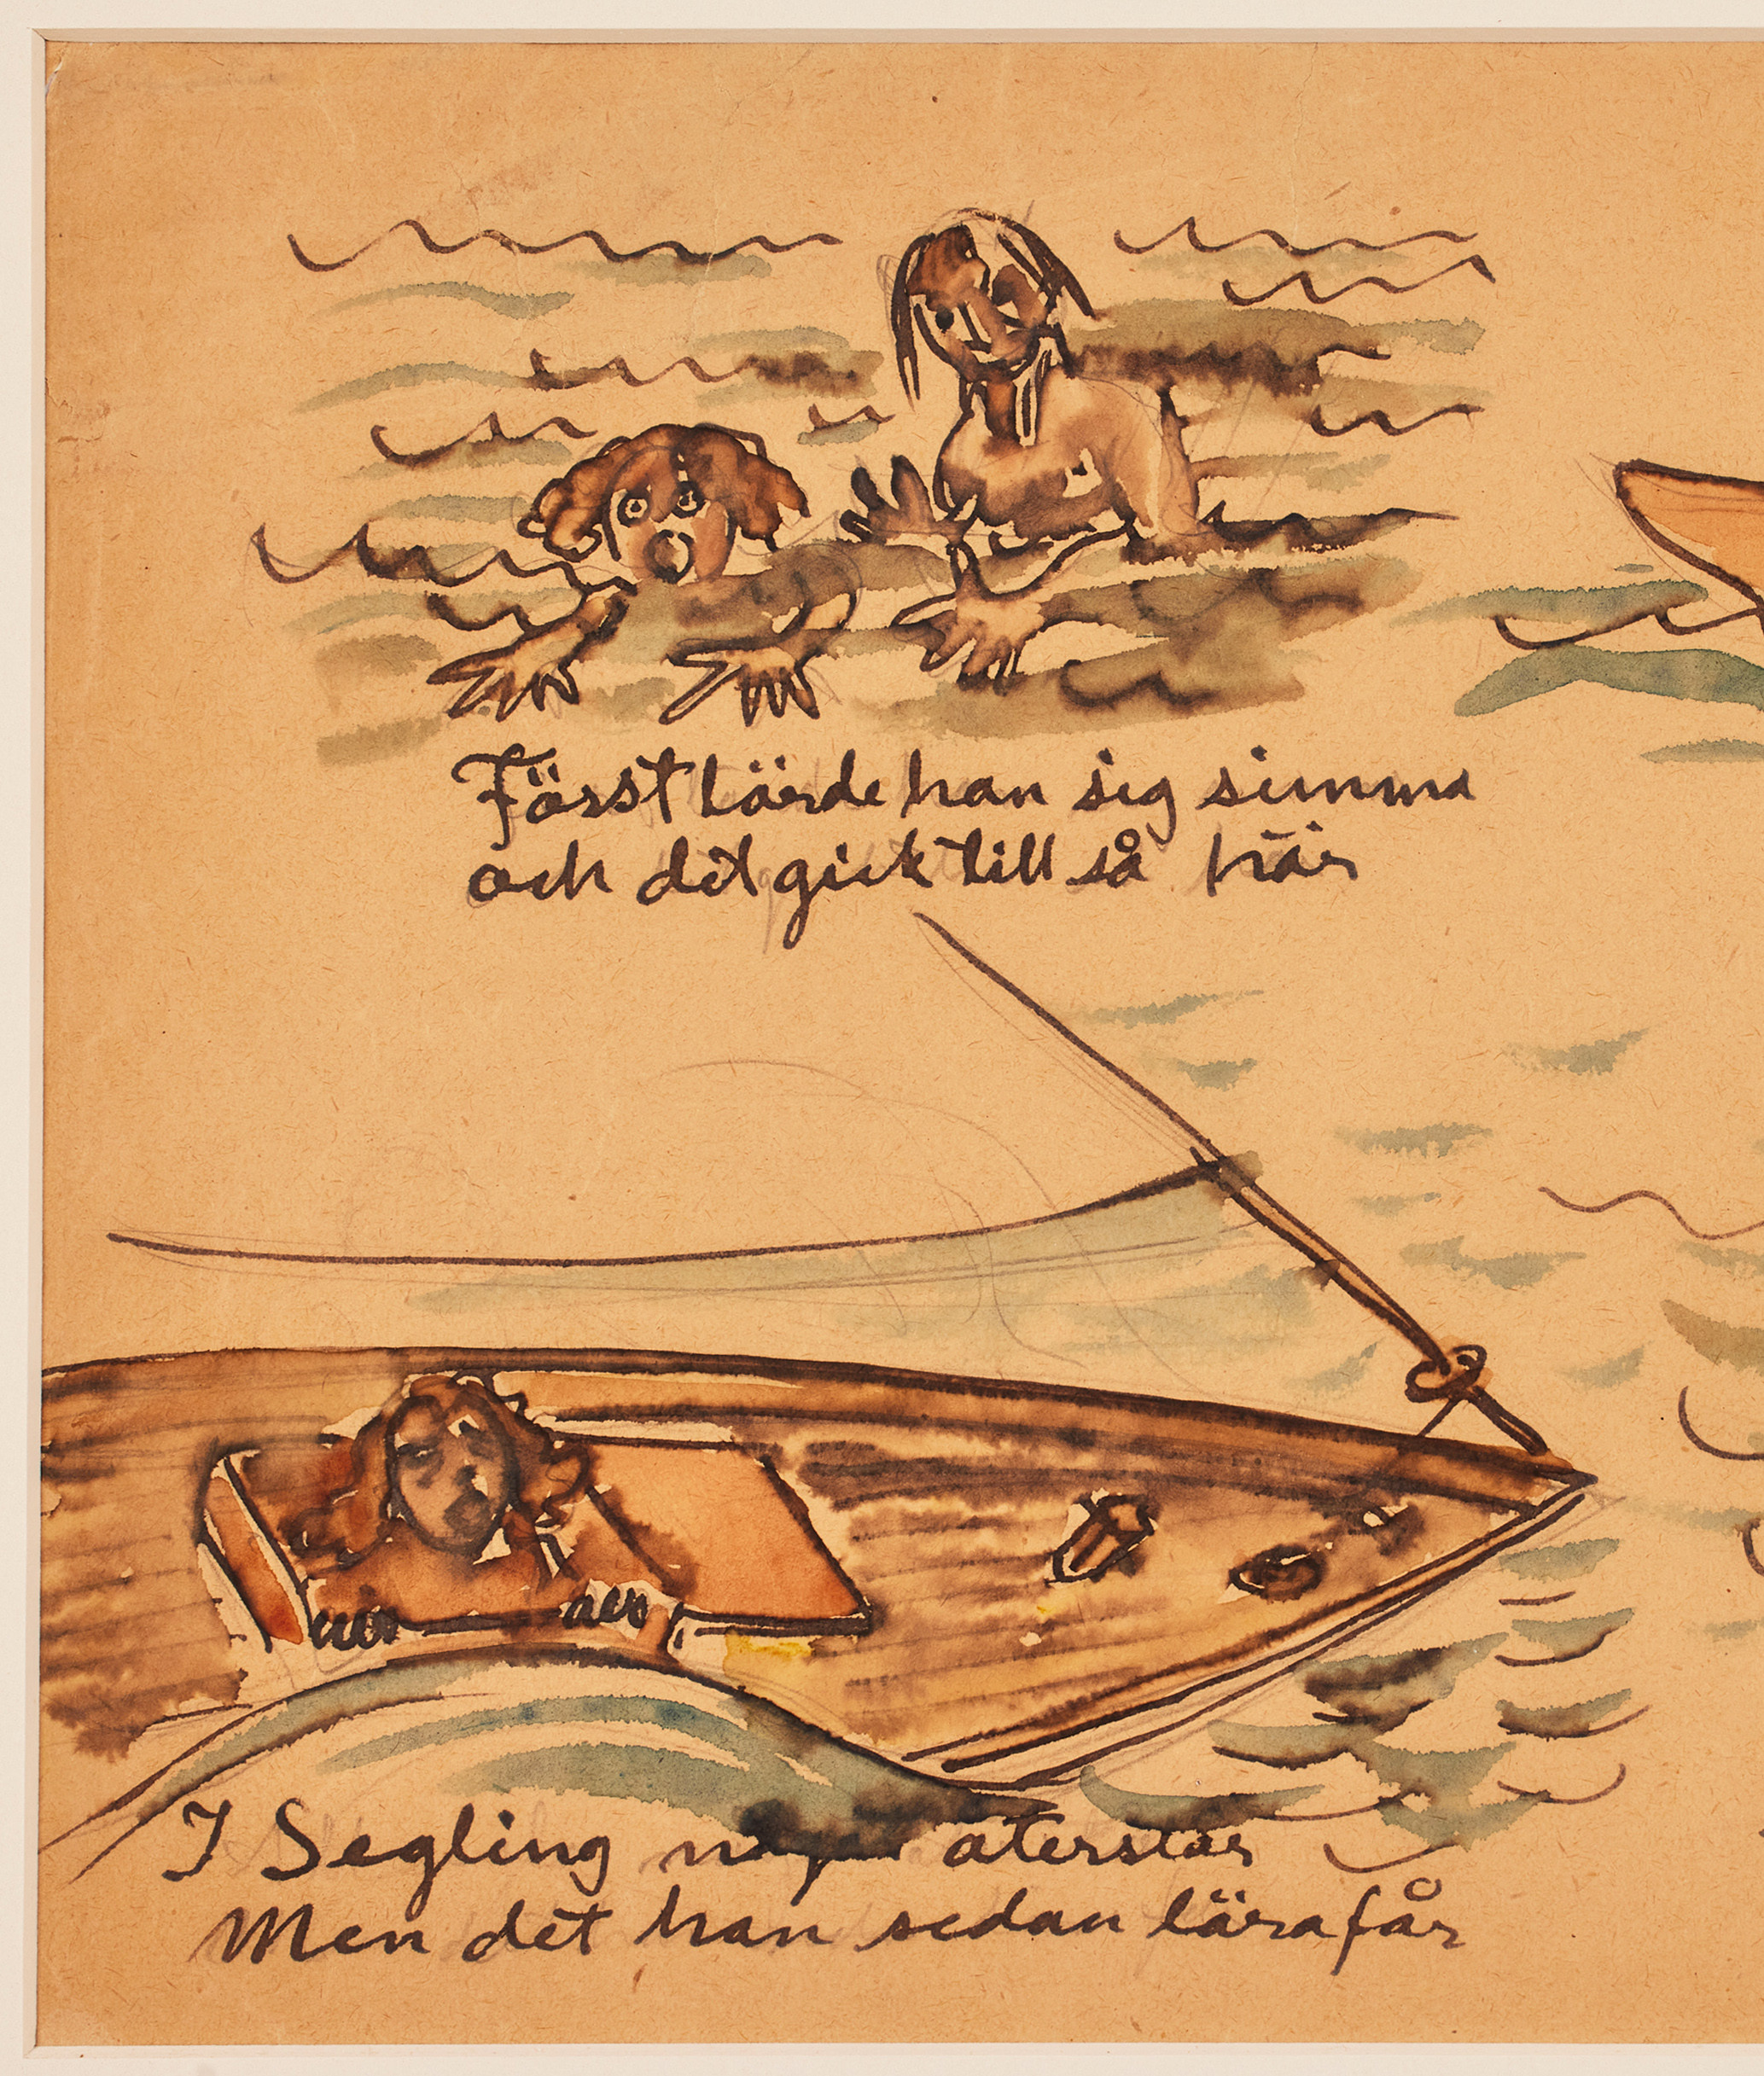 Först lärde han sig simma
och det gick till så här
I Segling återstår
Men det han sedan lära får